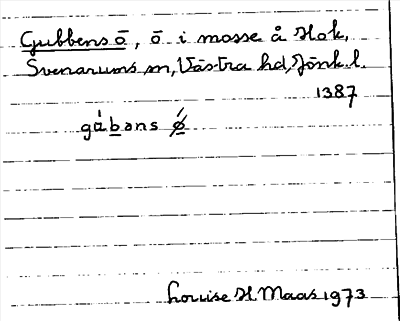 Gubbens ö, ö i mosse å Hok,
Svenarums sn, Västra hd, Jönk. l.
1387
gúbəns ǿ
Louise H. Maas 1973